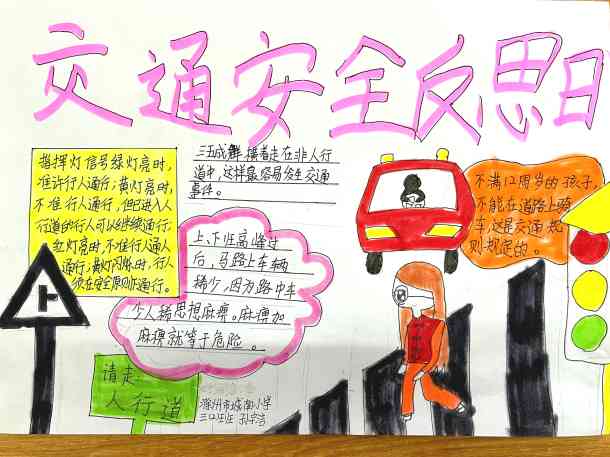 交通安全反思日
指挥灯信号绿灯亮时,
准许行人通行;黄灯亮时,
不准行人通行,但已进入人
行道的行人可以继续通行;
红灯亮时,不准行人通人
通行;黄灯闪烁时,行人
须在安全原则通行。
三五成群横着走在非人行
道中,这样最容易发生交通
事件。
上、下班高峰过
后,马路上车辆
稀少,因为路中车
少人稀思想麻痹。麻痹加
麻痹就等于危险。
不满12周岁的孩子,
不能在道路上骑
车,这是交通规
则规定的。
请走
人行道
滁州市城南小学